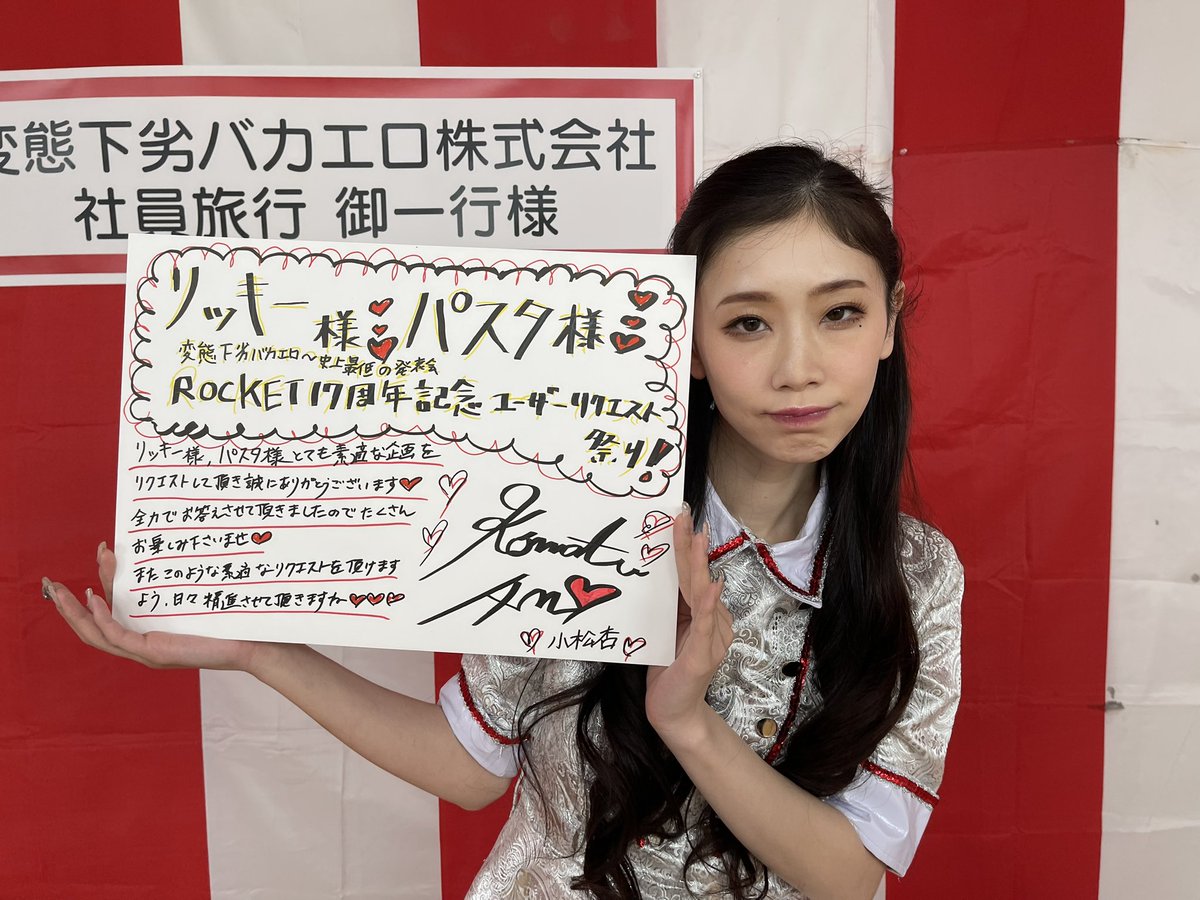 変態下劣バカエロ株式会社
社員旅行 御一行様
リッキー様 パスタ様
変態下劣バカエロ～史上最低の発表会
ROCKET17周年記念 ユーザーリクエスト
祭り!
リッキー様、パスタ様とても素適な企画を
リクエストして頂き誠にありがとうございます♥
全力でお答えさせて頂きましたのでたくさん
お楽しみ下さいませ♥
またこのような素適なリクエストを頂けます
よう、日々精進させて頂きますね♥♥♥
Komatu
An
小松杏